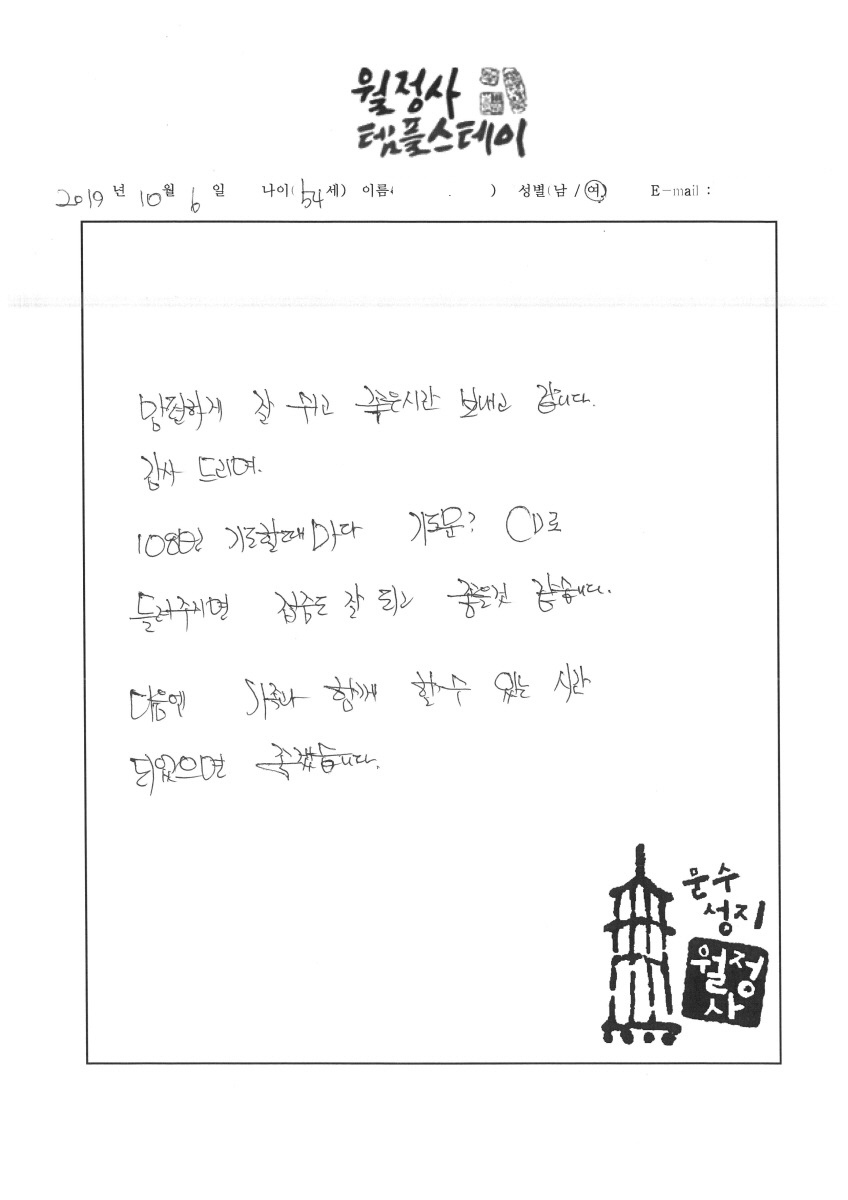 월정사
템플스테이
2019년 10월 6일 나이(54세) 이름( . ) 성별(남/여) E-mail :
맘편하게 잘 쉬고 좋은시간 보내고 갑니다.
감사 드리며.
108일 기도할때마다 기도문? CD로
들려주시면 집중도 잘 되고 좋을것 같습니다.
다음에 가족과 함께 할수 있는 시간
되었으면 좋겠습니다.
문수
성지
월정
사